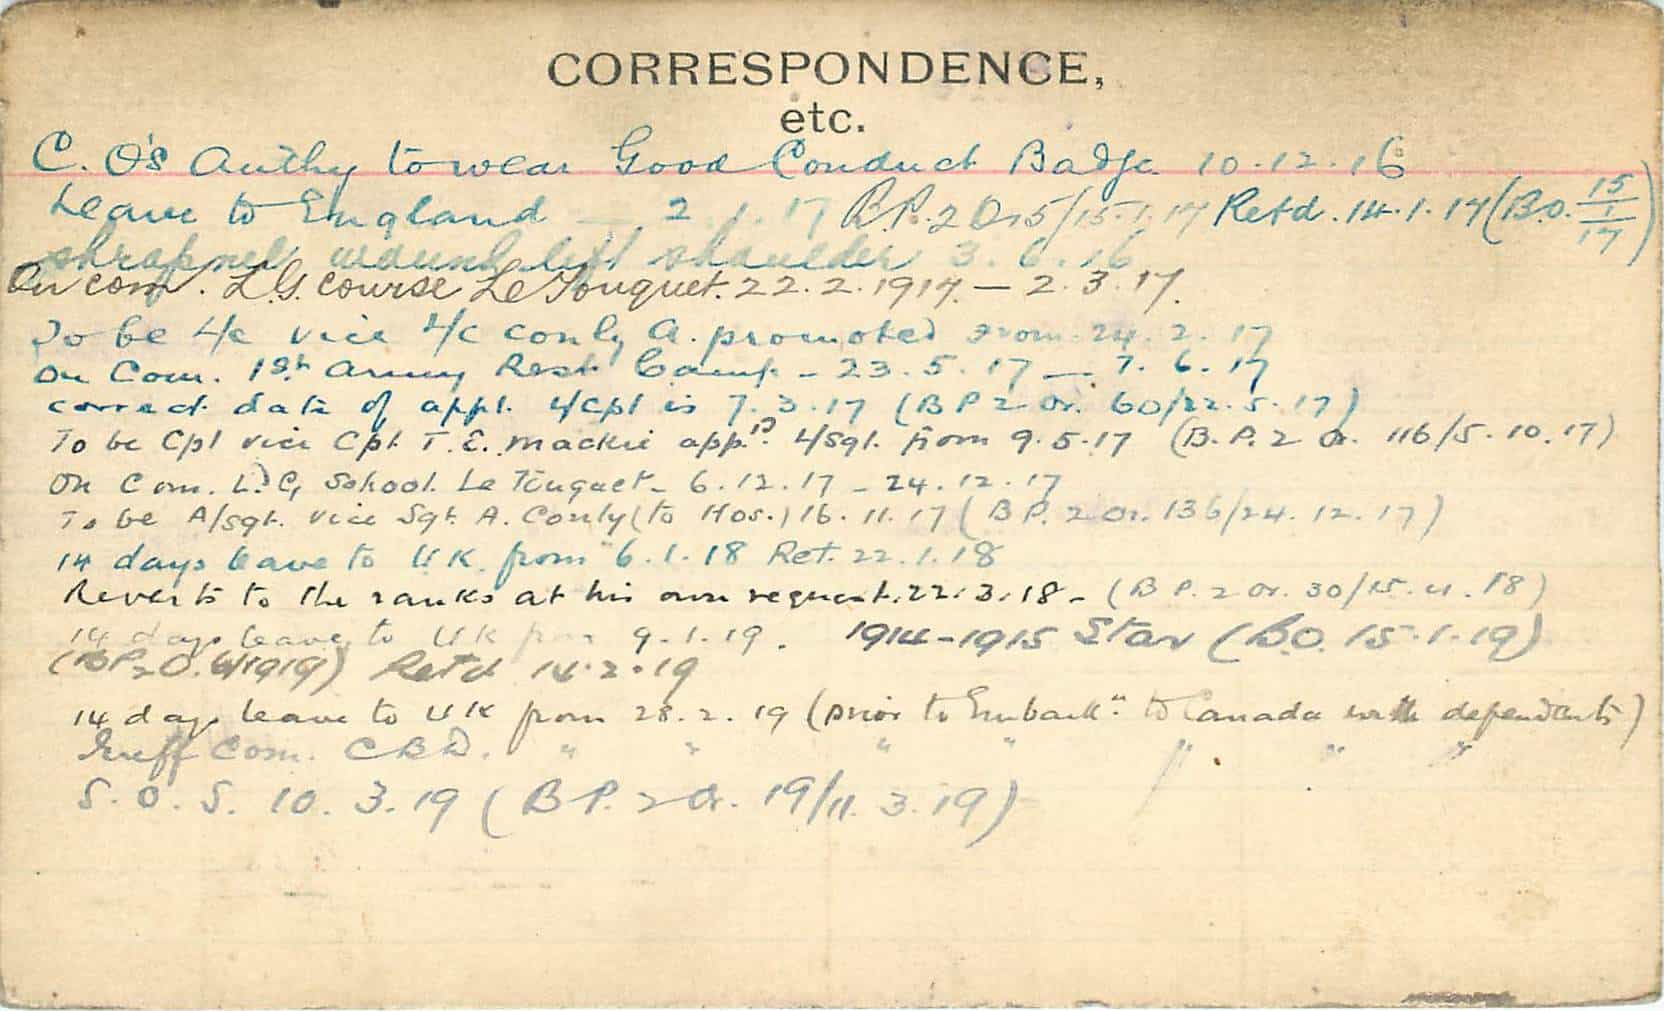 CORRESPONDENCE,
etc.
C. O's Authy to wear Good Conduct Badge 10.12.16
Leave to England — 2.1.17 B.P.2 Or 5/15.1.17 Retd. 14.1.17 (B.O. 15/1/17)
shrapnel wound left shoulder 3.6.16
On com. L.G. course Le Touquet. 22.2.1917. — 2.3.17.
To be L/c vice L/c Conly A. promoted from 24.2.17
On Com. 1st Army Rest Camp - 23.5.17 — 7.6.17
correct date of appt. L/Cpl is 7.3.17 (BP 2 Or. 60/22.5.17)
To be Cpl vice Cpl. T. E. Mackie app. L/Sgt. from 9.5.17 (B.P. 2 Or. 116/5.10.17)
On Com. L.G. School. Le Touquet - 6.12.17 - 24.12.17
To be A/Sgt. vice Sgt. A. Conly (to Hos.) 16.11.17 (BP. 2 Or. 136/24.12.17)
14 days leave to UK. from 6.1.18 Ret. 22.1.18
Reverts to the ranks at his own request. 22.3.18 - (BP. 2 Or. 30/15.4.18)
14 days leave to UK from 9.1.19. 1914-1915 Star (B.O. 15.1.19)
(BP2O. 6/1919) Retd 14.2.19
14 days leave to UK from 28.2.19 (prior to Embark" to Canada with dependents)
Com. CBD. " " " " " " "
S.O.S. 10.3.19 (BP. 2 Or. 19/11.3.19)